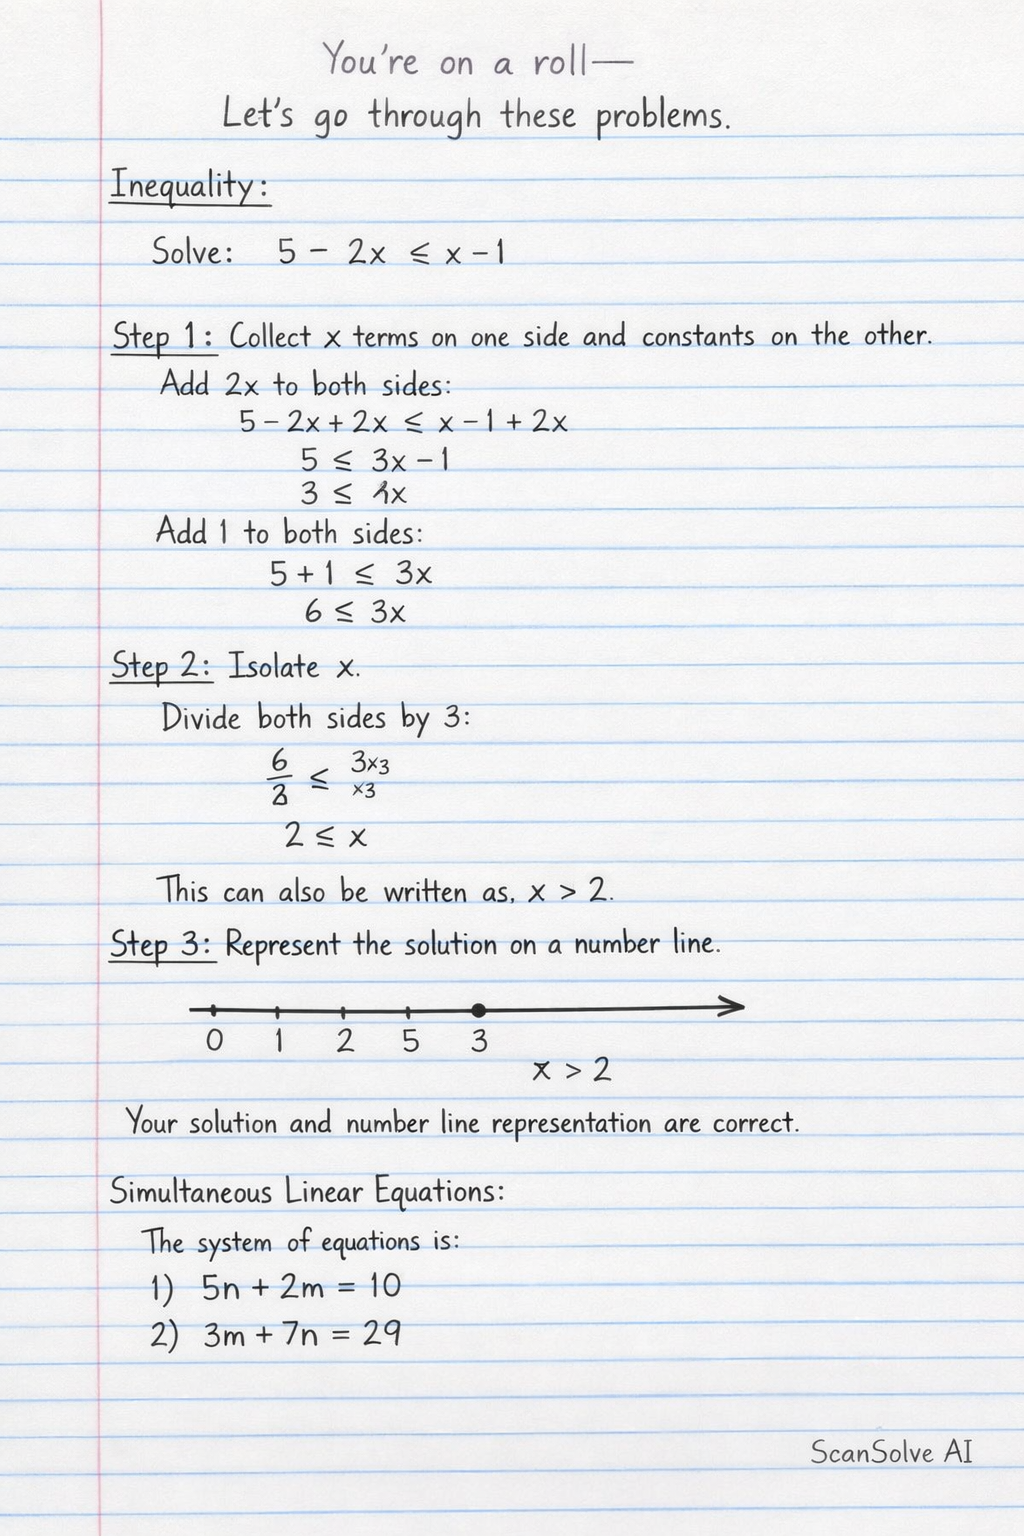 You're on a roll—
Let's go through these problems.
Inequality:
Solve: 5 - 2x ≤ x - 1
Step 1: Collect x terms on one side and constants on the other.
Add 2x to both sides:
5 - 2x + 2x ≤ x - 1 + 2x
5 ≤ 3x - 1
3 ≤ x
Add 1 to both sides:
5 + 1 ≤ 3x
6 ≤ 3x
Step 2: Isolate x.
Divide both sides by 3:
6 ≤ 3x3
3 x3
2 ≤ x
This can also be written as, x > 2.
Step 3: Represent the solution on a number line.
0 1 2 5 3
x > 2
Your solution and number line representation are correct.
Simultaneous Linear Equations:
The system of equations is:
1) 5n + 2m = 10
2) 3m + 7n = 29
ScanSolve AI